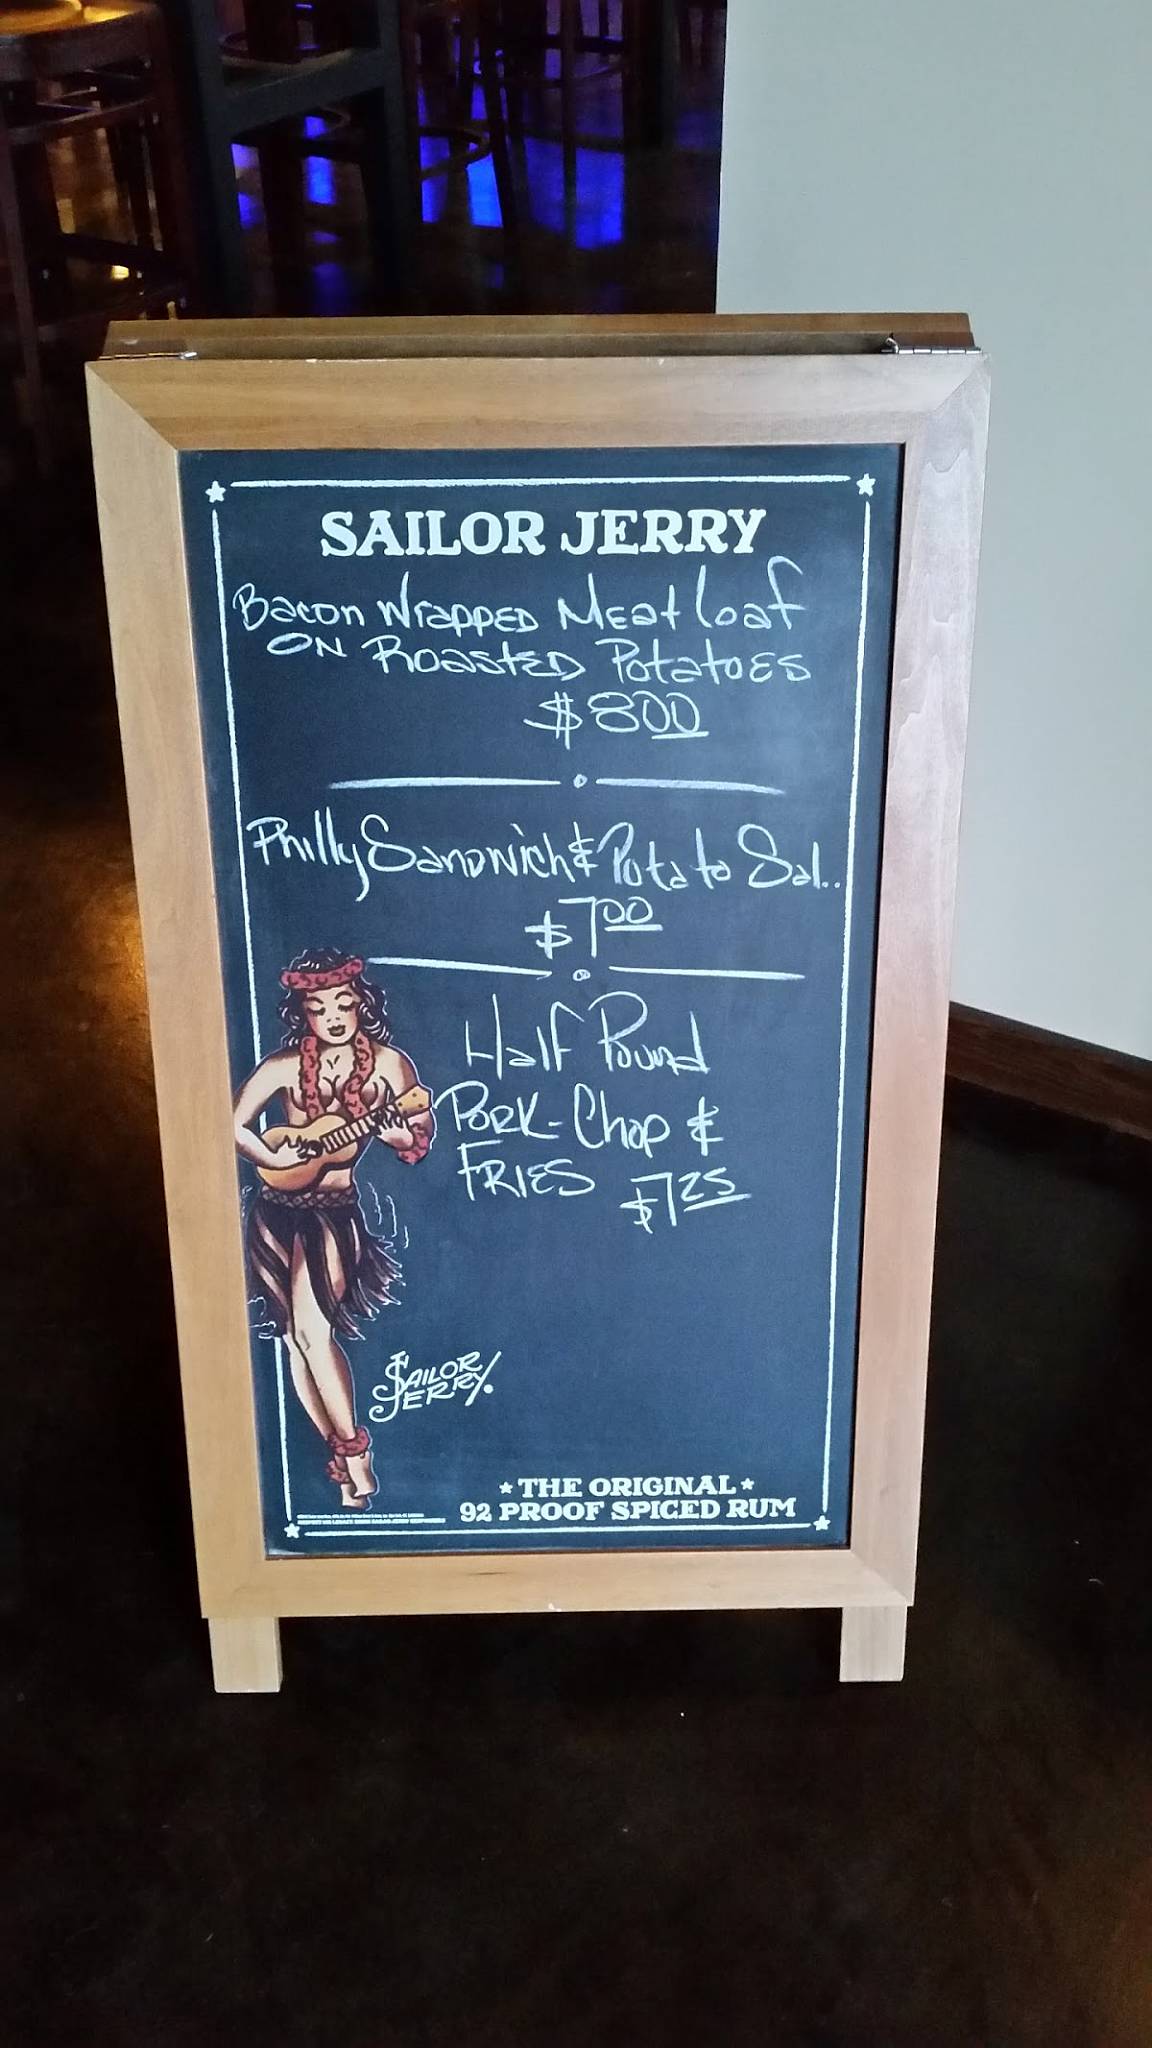 SAILOR JERRY
Bacon Wrapped Meatloaf
on Roasted Potatoes
$8.00
Philly Sandwich & Potato Sal..
$7.00
Half Pound
Pork-Chop &
Fries $7.25
SAILOR
JERRY.
★ THE ORIGINAL ★
92 PROOF SPICED RUM